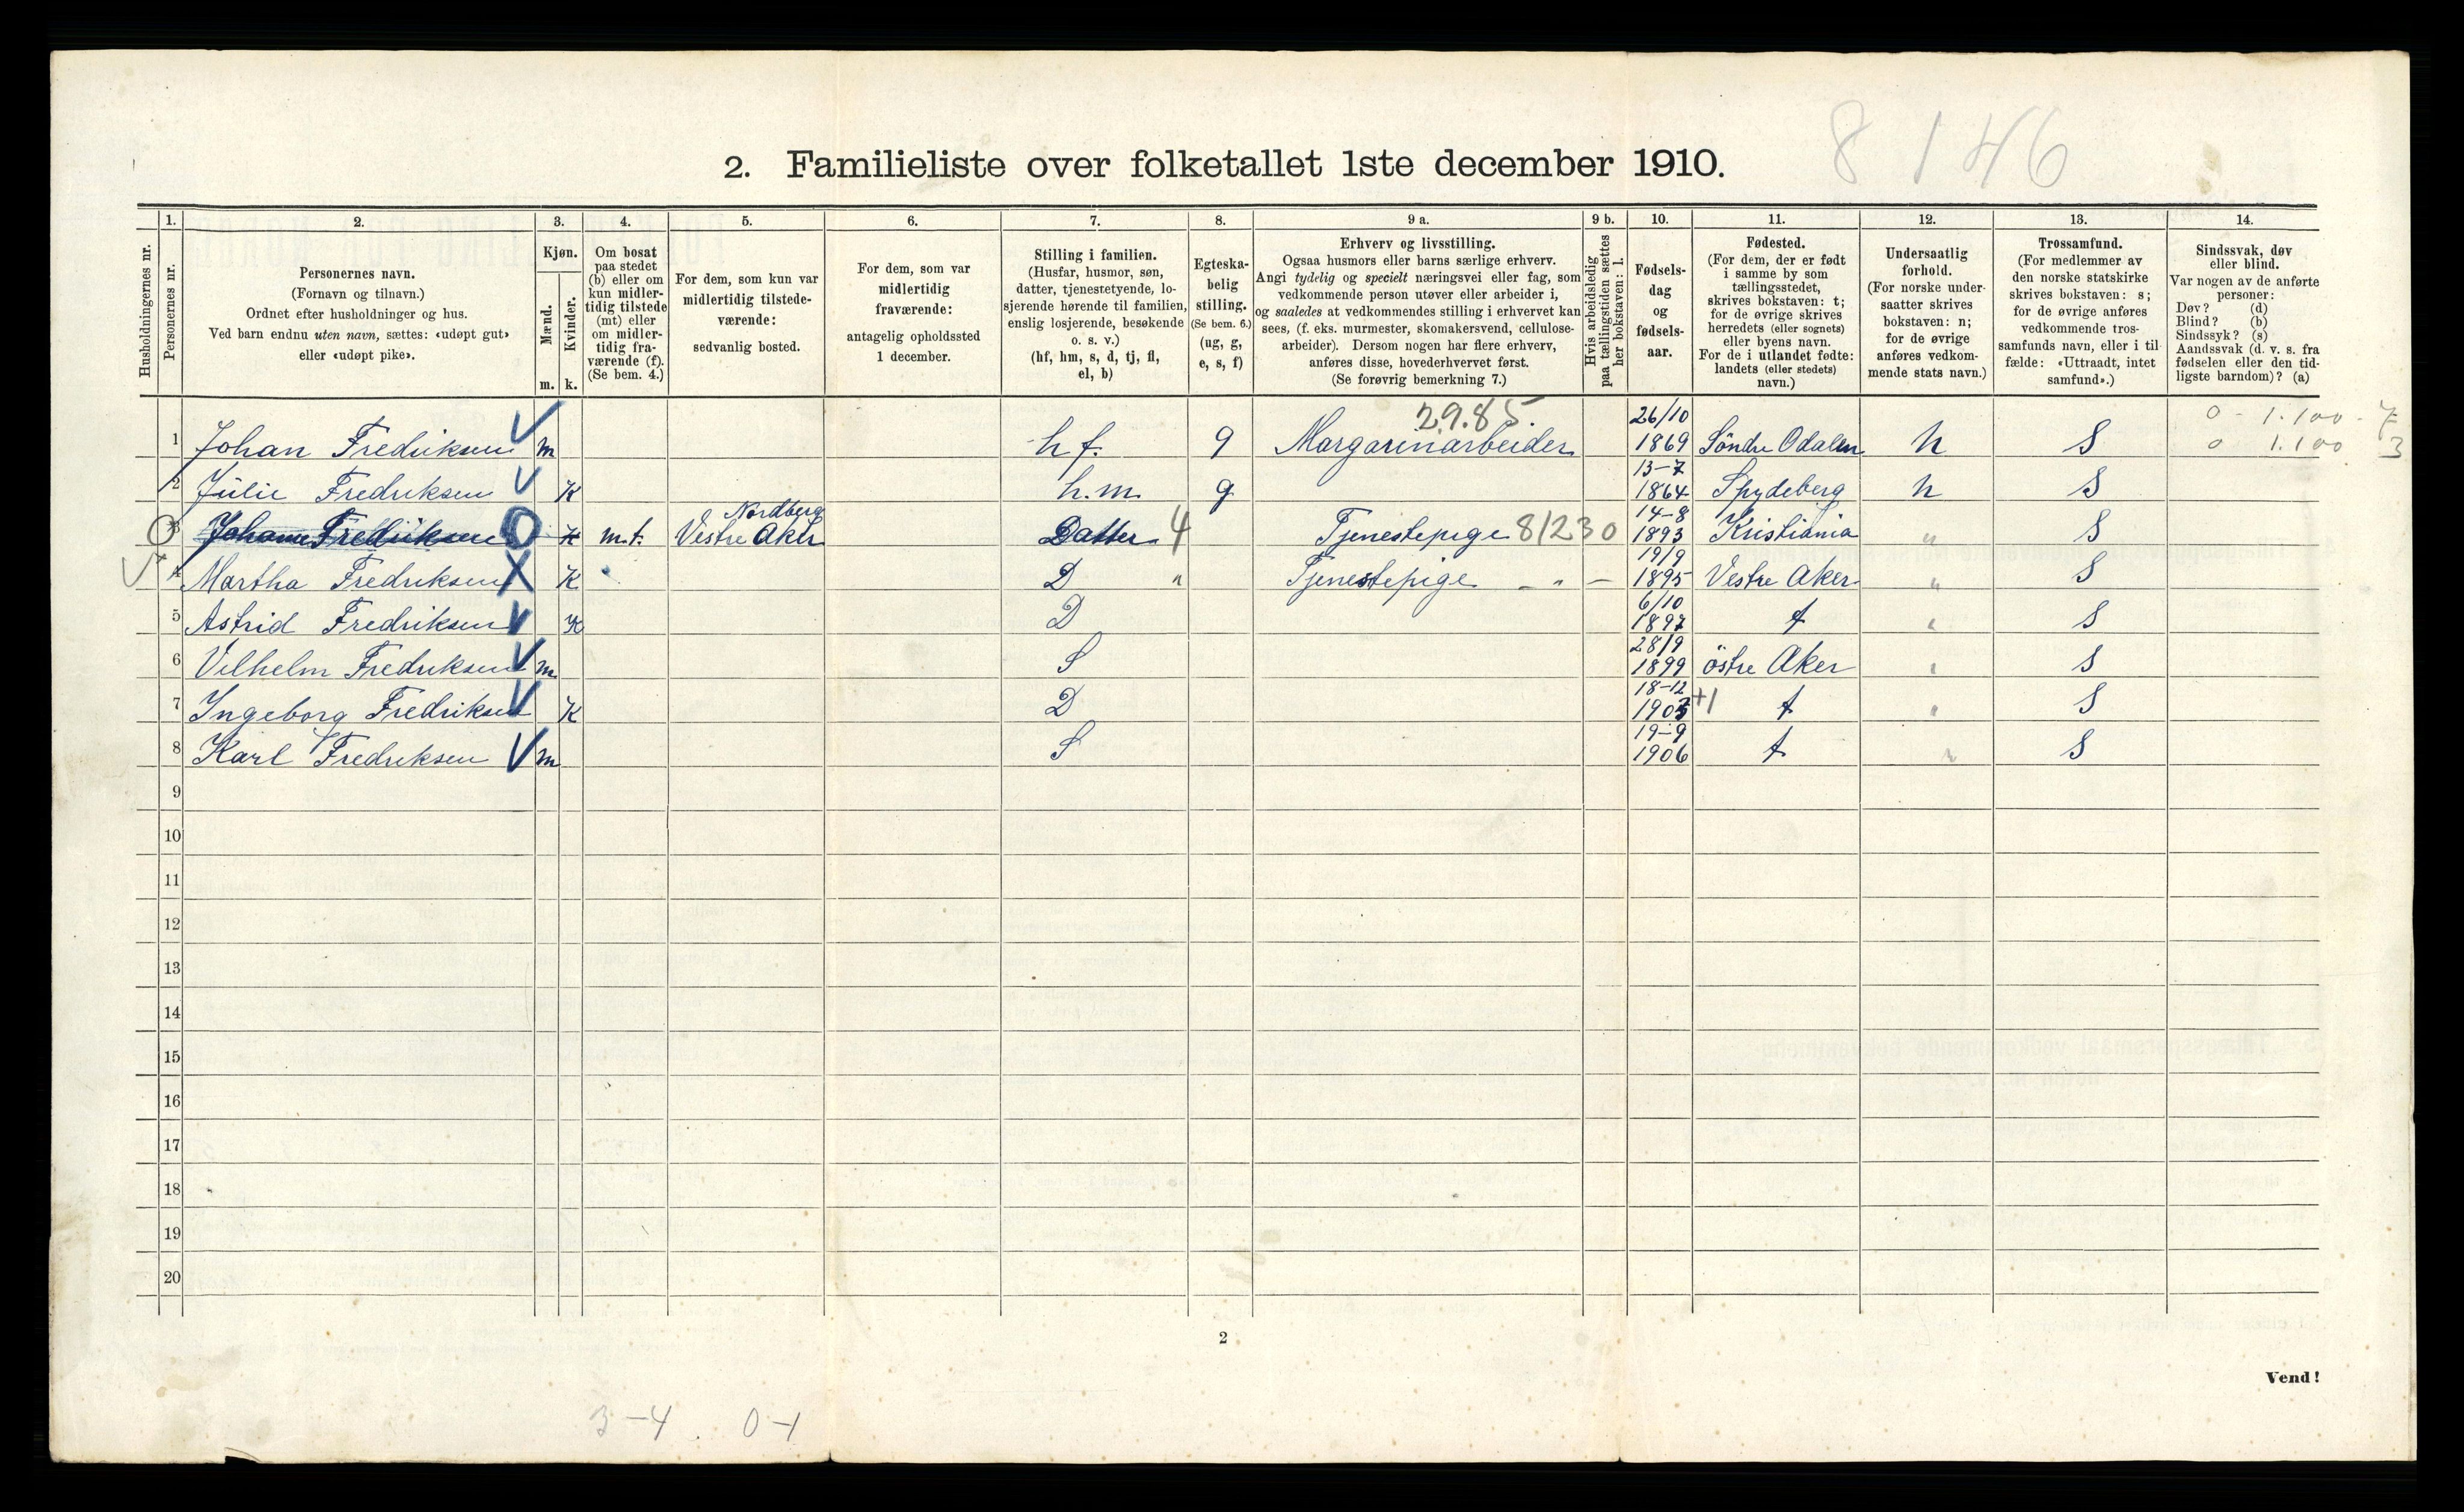 8146
2. Familieliste over folketallet 1ste december 1910.
Husholdningernes nr.
1.
Personernes nr.
2.
Personernes navn.
(Fornavn og tilnavn.)
Ordnet efter husholdninger og hus.
Ved barn endnu uten navn, sættes: «udøpt gut»
eller «udøpt pike».
3.
Kjøn.
Mænd.
Kvinder.
m. k.
4.
Om bosat
paa stedet
(b) eller om
kun midler-
tidig tilstede
(mt) eller
om midler-
tidig fra-
værende (f).
(Se bem. 4.)
5.
For dem, som kun var
midlertidig tilstede-
værende:
sedvanlig bosted.
6.
For dem, som var
midlertidig
fraværende:
antagelig opholdssted
1 december.
7.
Stilling i familien.
(Husfar, husmor, søn,
datter, tjenestetyende, lo-
sjerende hørende til familien,
enslig losjerende, besøkende
o. s. v.)
(hf, hm, s, d, tj, fl,
el, b)
8.
Egteska-
belig
stilling.
(Se bem. 6.)
(ug, g,
e, s, f)
9 a.
Erhverv og livsstilling.
Ogsaa husmors eller barns særlige erhverv.
Angi tydelig og specielt næringsvei eller fag, som
vedkommende person utøver eller arbeider i,
og saaledes at vedkommendes stilling i erhvervet kan
sees, (f. eks. murmester, skomakersvend, cellulose-
arbeider). Dersom nogen har flere erhverv,
anføres disse, hovederhvervet først.
(Se forøvrig bemerkning 7.)
9 b.
Hvis arbeidsledig
paa tællingstiden sættes
her bokstaven: l.
10.
Fødsels-
dag
og
fødsels-
aar.
11.
Fødested.
(For dem, der er født
i samme by som
tællingsstedet,
skrives bokstaven: t;
for de øvrige skrives
herredets (eller sognets)
eller byens navn.
For de i utlandet fødte:
landets (eller stedets)
navn.)
12.
Undersaatlig
forhold.
(For norske under-
saatter skrives
bokstaven: n;
for de øvrige
anføres vedkom-
mende stats navn.)
13.
Trossamfund.
(For medlemmer av
den norske statskirke
skrives bokstaven: s;
for de øvrige anføres
vedkommende tros-
samfunds navn, eller i til-
fælde: «Uttraadt, intet
samfund».)
14.
Sindssvak, døv
eller blind.
Var nogen av de anførte
personer:
Døv? (d)
Blind? (b)
Sindssyk? (s)
Aandssvak (d. v. s. fra
fødselen eller den tid-
ligste barndom)? (a)
29.85 26/10 0 - 1.100 - 7
1 Johan Fredriksen m hf. g Margarinarbeider 1869 Söndre Odalen n S 0 1.100 3
13-7
2 Julie Fredriksen K h.m. g 1864 Spydeberg n S
Nordberg 14-8
3 Johanne Fredriksen K m.t. Vestre Aker Datter 4 Tjenestepige 81230 1893 Kristiania " S
19/9
4 Martha Fredriksen K D " Tjenestepige - " - 1895 Vestre Aker " S
6/10
5 Astrid Fredriksen K D 1897 t " S
28/9
6 Vilhelm Fredriksen m S 1899 östre Aker " S
18-12
7 Ingeborg Fredriksen K D 1903 +1 t " S
19-9
8 Karl Fredriksen m S 1906 t " S
9
10
11
12
13
14
15
16
17
18
19
20
2
Vend!
3-4 . 0-1